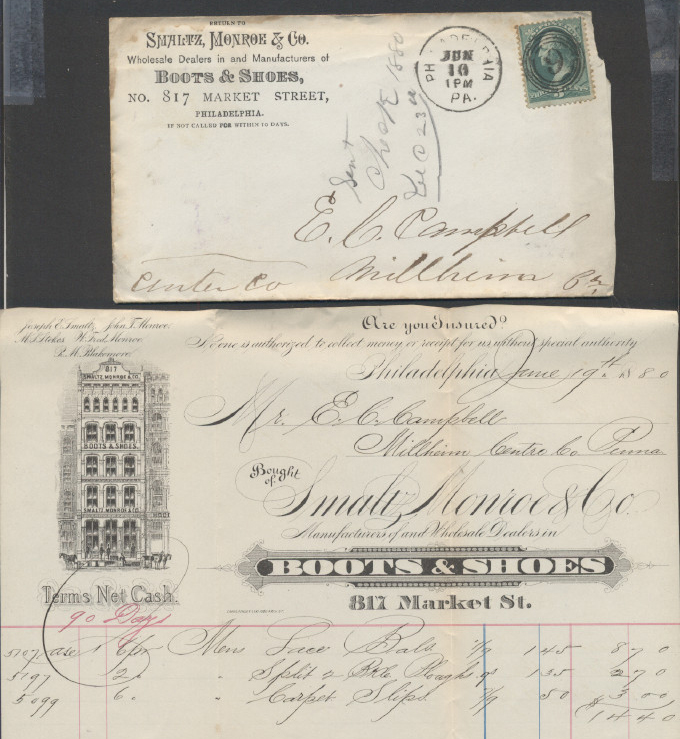 RETURN TO
SMALTZ, MONROE & CO.
Wholesale Dealers in and Manufacturers of
BOOTS & SHOES,
NO. 817 MARKET STREET,
PHILADELPHIA.
IF NOT CALLED FOR WITHIN 10 DAYS.
PHILADELPHIA
JUN
16
1PM
PA.
Sent
Check 1880
Dec 23rd
E. C. Campbell
Millheim
Center Co Pa.
Joseph E. Smaltz. John T. Monroe.
M. S. Stokes W. Fred. Monroe
R. M. Blakemore.
817
SMALTZ, MONROE & CO.
BOOTS & SHOES.
SMALTZ, MONROE & CO.
Are you Insured?
No one is authorized to collect money or receipt for us without special authority
Philadelphia, June 19th 1880
Mr. E. C. Campbell
Millheim Centre Co. Penna.
Bought of
Smaltz, Monroe & Co.
Manufacturers of and Wholesale Dealers in
BOOTS & SHOES
817 Market St.
Terms Net Cash.
90 Days
Case 1 6 pr Mens Lace Bals. 145 8 70
5197 2 " " Split 2 Bkle Ploughs 135 2 70
5099 6 " " Carpet Slips. 50 3 00
14 40